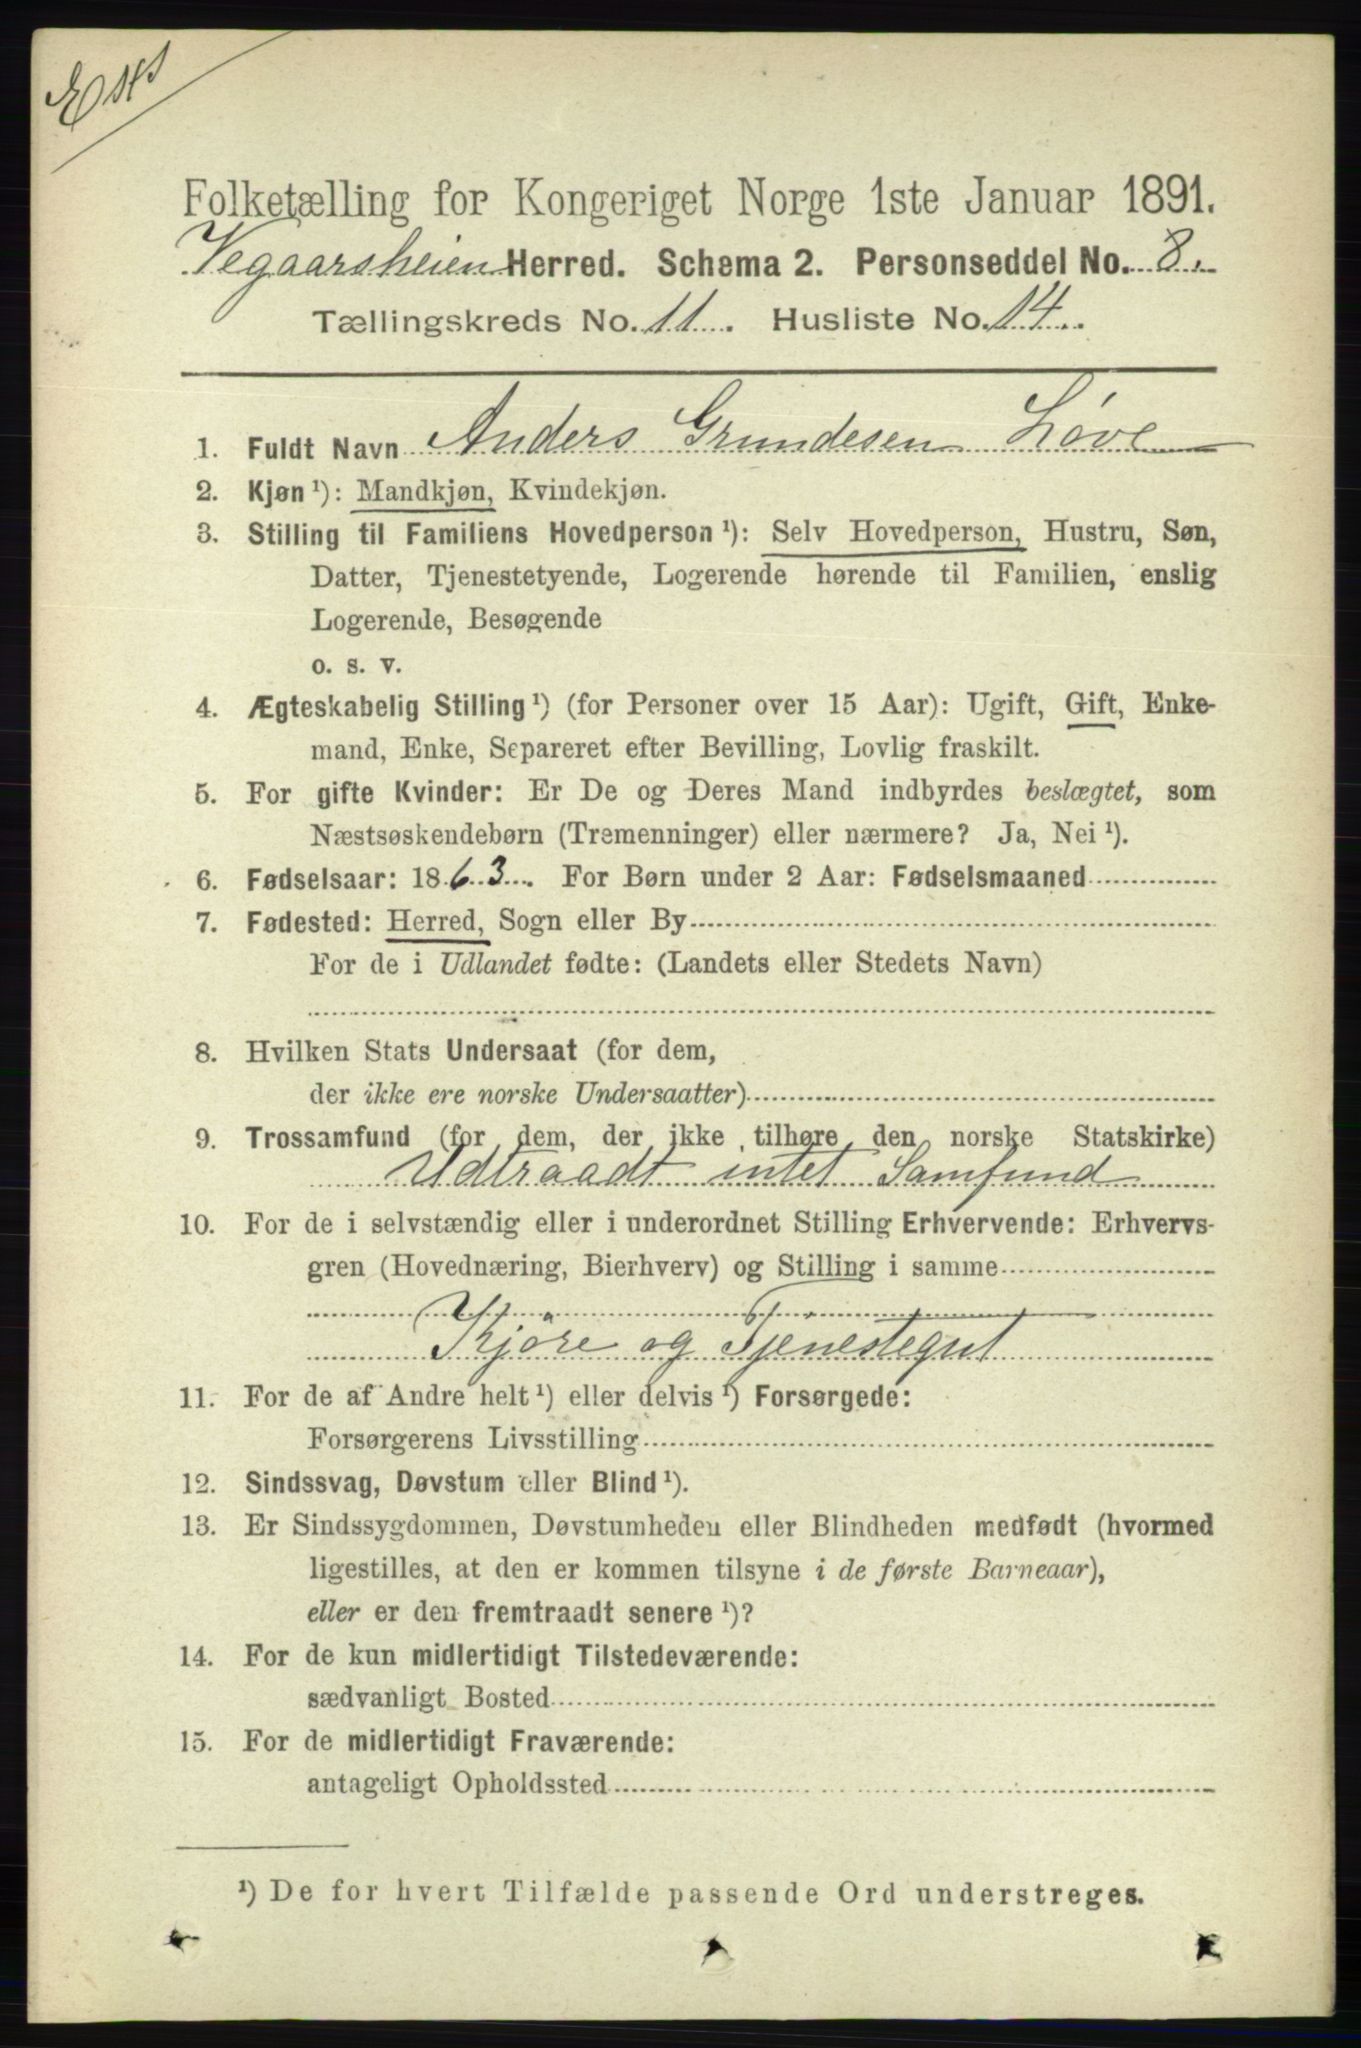 Folketælling for Kongeriget Norge 1ste Januar 1891.
Vegaarsheien Herred. Schema 2. Personseddel No. 8.
Tællingskreds No. 11. Husliste No. 14.
1. Fuldt Navn Anders Grundesen Löve
2. Kjøn ¹): Mandkjøn, Kvindekjøn.
3. Stilling til Familiens Hovedperson ¹): Selv Hovedperson, Hustru, Søn,
Datter, Tjenestetyende, Logerende hørende til Familien, enslig
Logerende, Besøgende
o. s. v.
4. Ægteskabelig Stilling ¹) (for Personer over 15 Aar): Ugift, Gift, Enke-
mand, Enke, Separeret efter Bevilling, Lovlig fraskilt.
5. For gifte Kvinder: Er De og Deres Mand indbyrdes beslægtet, som
Næstsøskendebørn (Tremenninger) eller nærmere? Ja, Nei ¹).
6. Fødselsaar: 1863. For Børn under 2 Aar: Fødselsmaaned
7. Fødested: Herred, Sogn eller By
For de i Udlandet fødte: (Landets eller Stedets Navn)
8. Hvilken Stats Undersaat (for dem,
der ikke ere norske Undersaatter)
9. Trossamfund (for dem, der ikke tilhøre den norske Statskirke)
Udtraadt intet Samfund
10. For de i selvstændig eller i underordnet Stilling Erhvervende: Erhvervs-
gren (Hovednæring, Bierhverv) og Stilling i samme
Kjöre og Tjenestegut
11. For de af Andre helt ¹) eller delvis ¹) Forsørgede:
Forsørgerens Livsstilling
12. Sindssvag, Døvstum eller Blind ¹).
13. Er Sindssygdommen, Døvstumheden eller Blindheden medfødt (hvormed
ligestilles, at den er kommen tilsyne i de første Barneaar),
eller er den fremtraadt senere ¹)?
14. For de kun midlertidigt Tilstedeværende:
sædvanligt Bosted
15. For de midlertidigt Fraværende:
antageligt Opholdssted
¹) De for hvert Tilfælde passende Ord understreges.